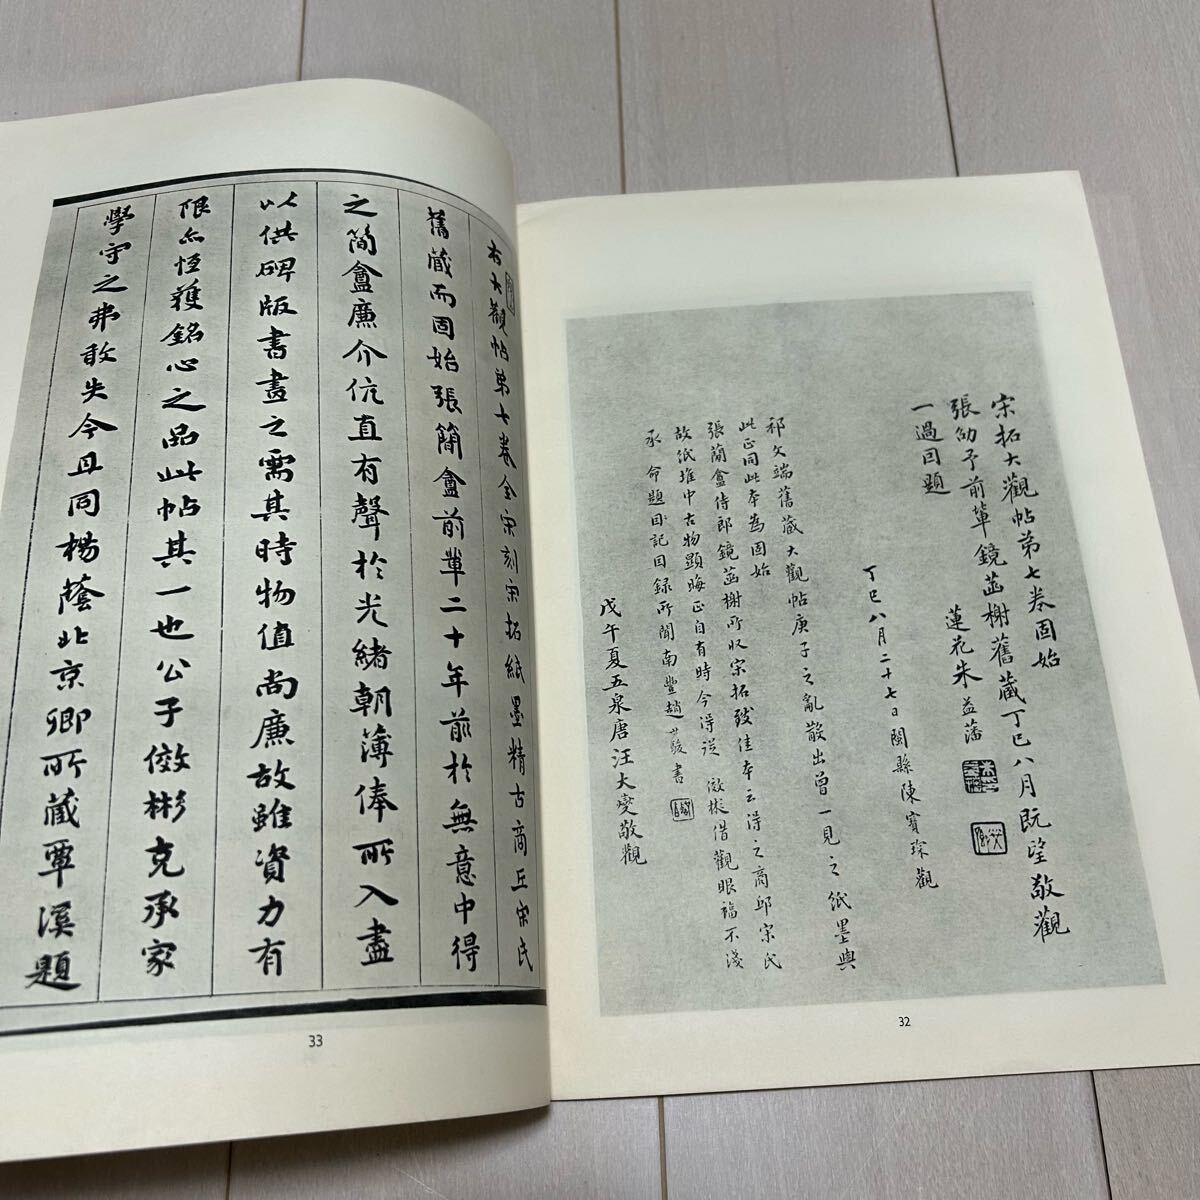 宋拓大觀帖第七卷固始
張幼予前輩鏡菡榭舊藏丁巳八月既望敬觀
一過因題
蓮花朱益藩
丁巳八月二十七日閩縣陳寶琛觀
祁文端舊藏大觀帖庚子之亂散出曾一見之紙墨與
此正同此本為固始
張蘭盦侍郎鏡菡榭所收宋拓致佳本云得之商邱宋氏
故紙堆中古物顯晦正自有時今得從
傚彬借觀眼福不淺
承命題因記因錄所聞南豐趙世駿書
戊午夏五泉唐汪大燮敬觀
32
右大觀帖第七卷全宋刻宋拓紙墨精古商丘宋氏
舊藏而固始張簡盦前輩二十年前於無意中得
之簡盦廉介伉直有聲於光緒朝薄俸所入盡
以供碑版書畫之需其時物值尚廉故雖資力有
限亦恆獲銘心之品此帖其一也公子傚彬克承家
學守之弗敢失今且同楊蔭北京卿所藏覃溪題
33